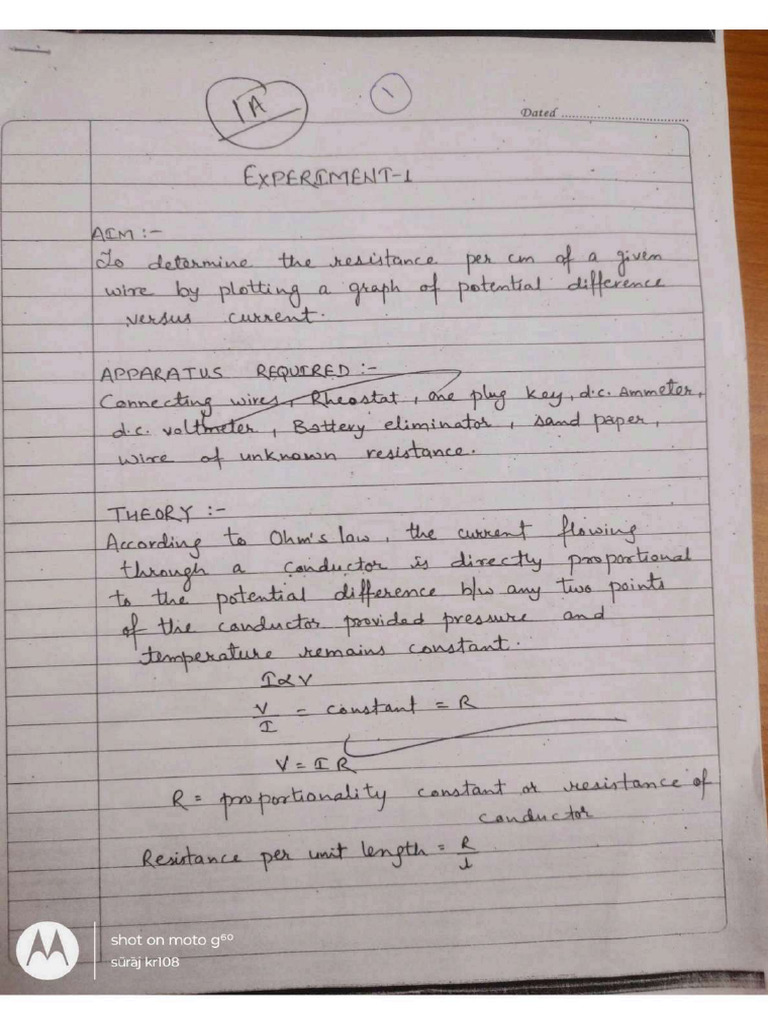 1A
1
Dated ..............................
EXPERIMENT-1
AIM :-
To determine the resistance per cm of a given
wire by plotting a graph of potential difference
versus current.
APPARATUS REQUIRED :-
Connecting wires, Rheostat, one plug key, d.c. Ammeter,
d.c. voltmeter, Battery eliminator, sand paper,
wire of unknown resistance.
THEORY :-
According to Ohm's law, the current flowing
through a conductor is directly proportional
to the potential difference b/w any two points
of the conductor provided pressure and
temperature remains constant.
I∝V
V/I = constant = R
V = IR
R = proportionality constant or resistance of
conductor
Resistance per unit length = R/l
shot on moto g⁶⁰
sūrāj kr108